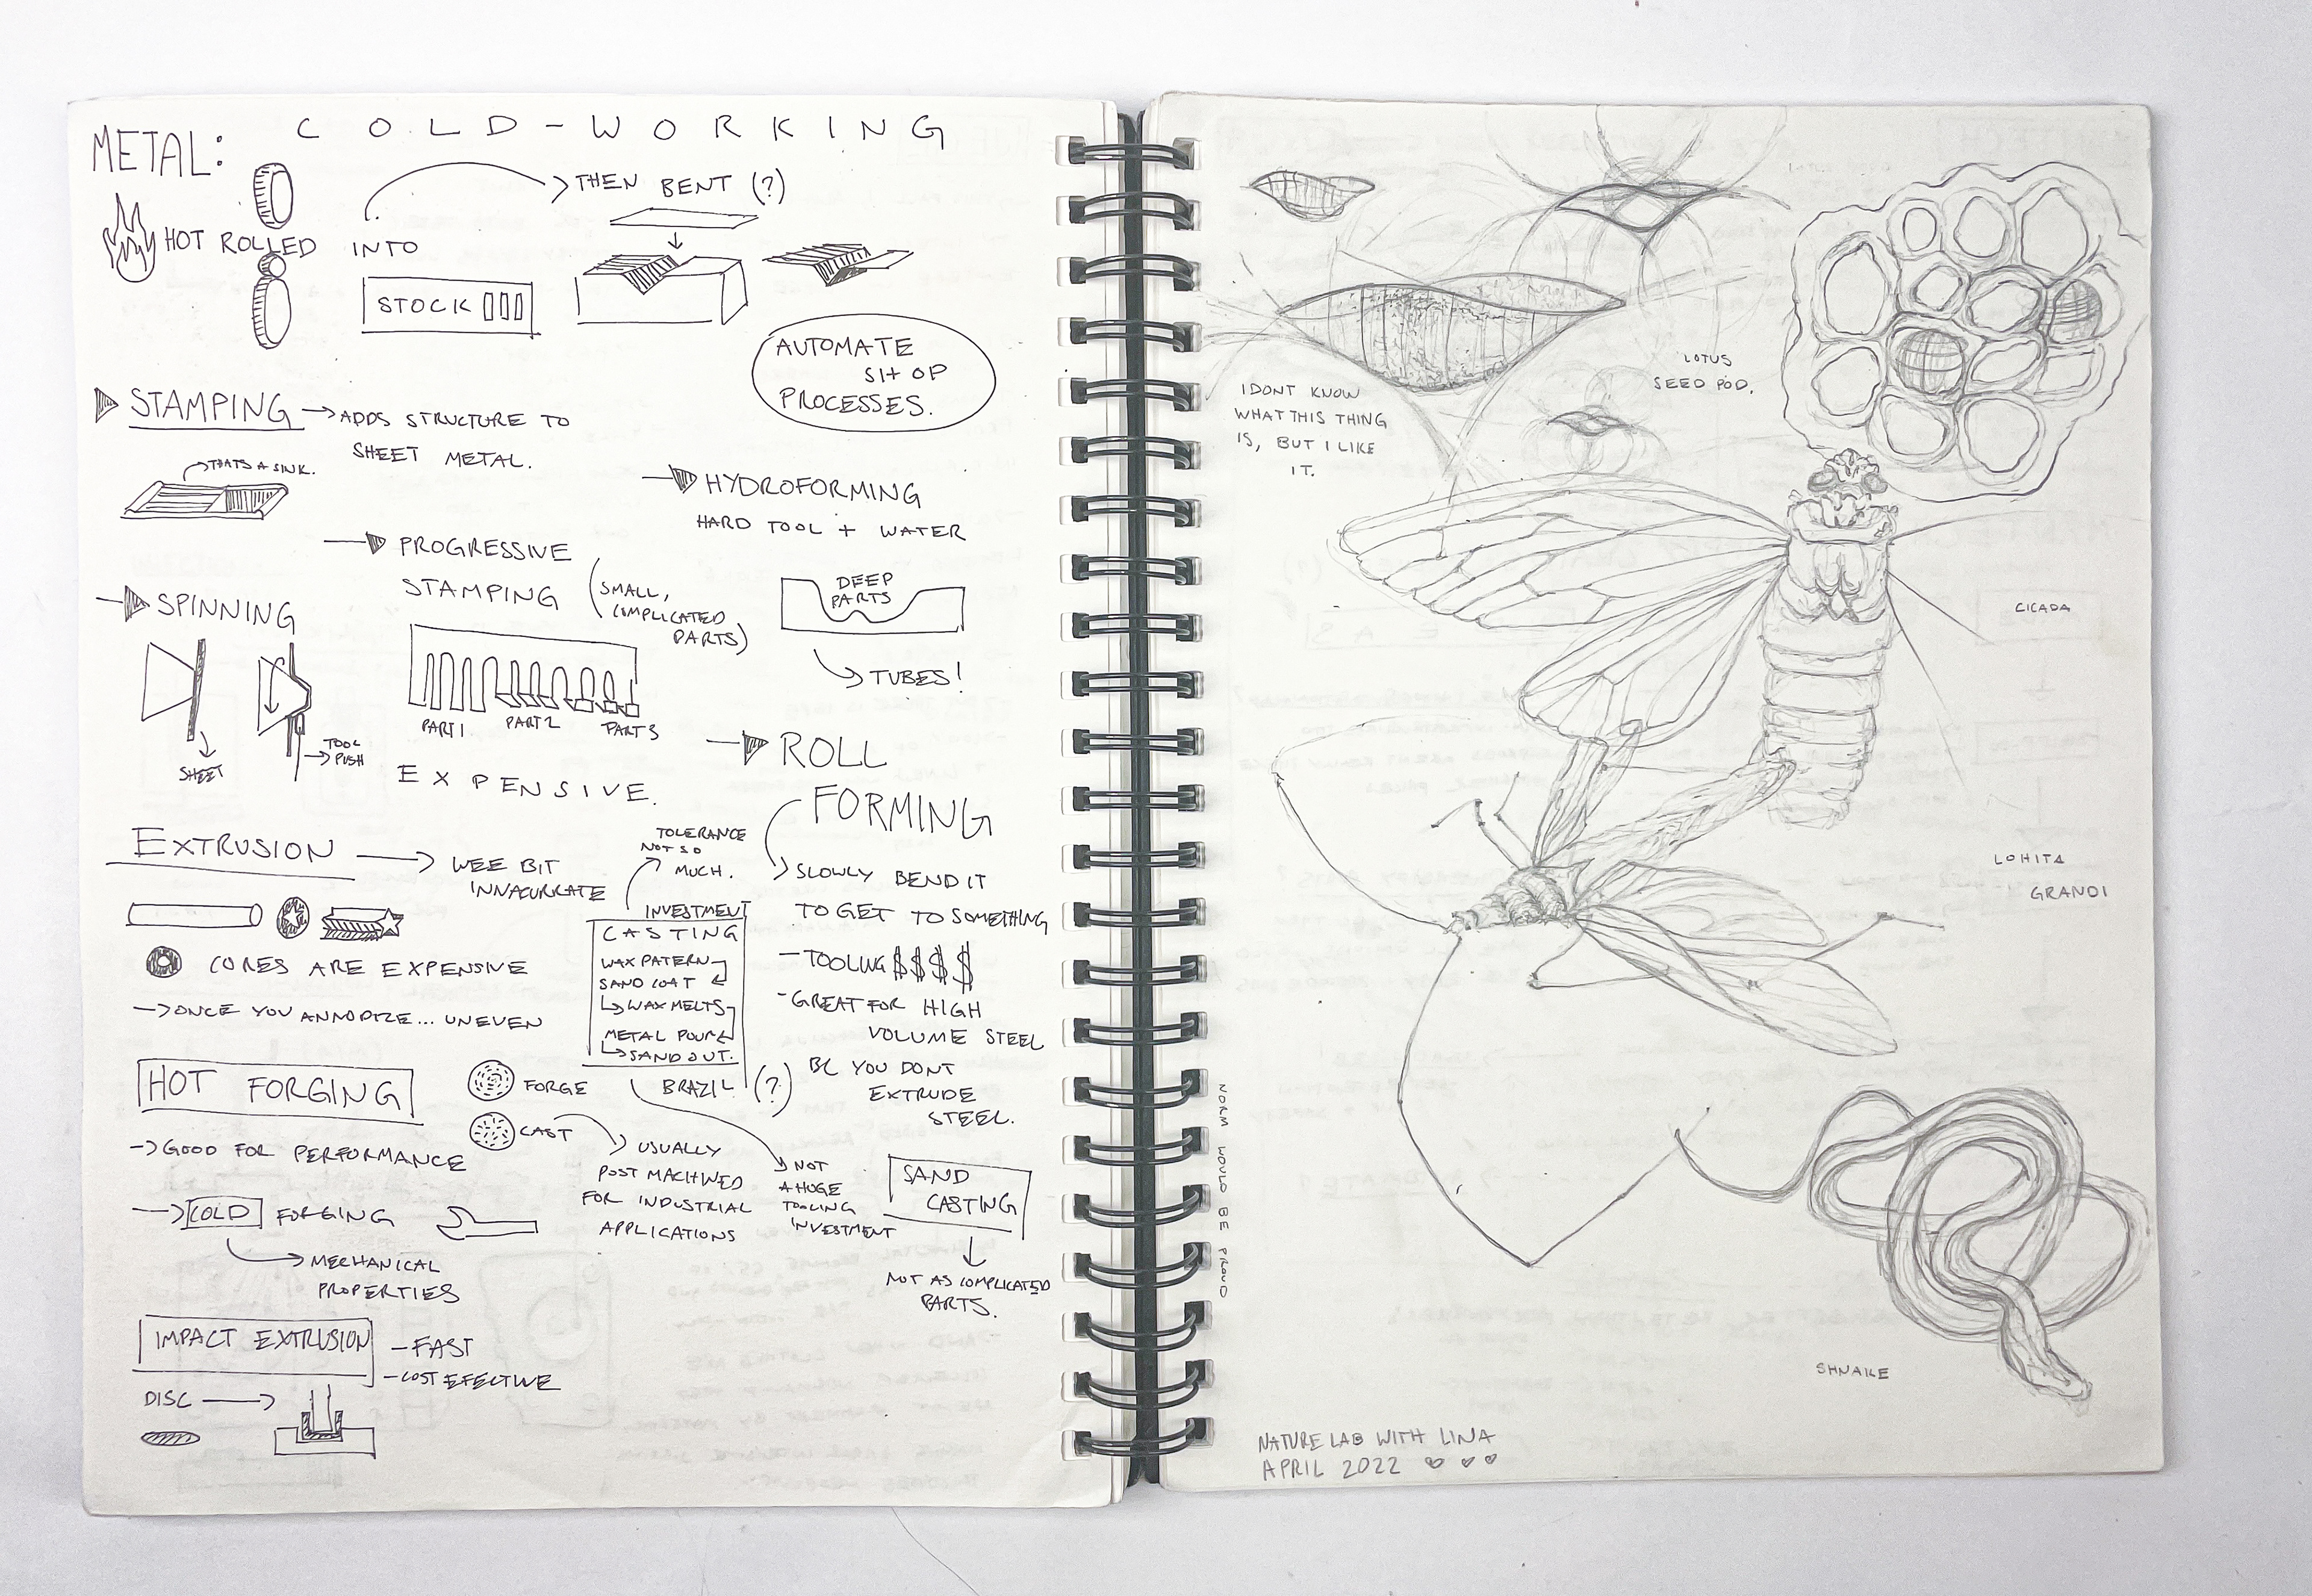 METAL:
COLD-WORKING
HOT ROLLED INTO
STOCK
THEN BENT (?)
AUTOMATE
SHOP
PROCESSES.
STAMPING
ADDS STRUCTURE TO
SHEET METAL.
THATS A SINK.
HYDROFORMING
HARD TOOL + WATER
DEEP
PARTS
TUBES!
PROGRESSIVE
STAMPING
(SMALL,
COMPLICATED
PARTS)
PART 1 PART 2 PART 3
EXPENSIVE.
SPINNING
SHEET
TOOL
PUSH
ROLL
FORMING
SLOWLY BEND IT
TO GET TO SOMETHING
- TOOLING $$$$
- GREAT FOR HIGH
VOLUME STEEL
BC YOU DONT
EXTRUDE
STEEL.
EXTRUSION
WEE BIT
INNACURRATE
CORES ARE EXPENSIVE
ONCE YOU ANNODIZE... UNEVEN
TOLERANCE
NOT SO
MUCH.
INVESTMENT
CASTING
WAX PATERN
SAND COAT
WAX MELTS
METAL POUR
SAND OUT.
BRAZIL (?)
NOT
A HUGE
TOOLING
INVESTMENT
HOT FORGING
FORGE
CAST
USUALLY
POST MACHINED
FOR INDUSTRIAL
APPLICATIONS
GOOD FOR PERFORMANCE
COLD FORGING
MECHANICAL
PROPERTIES
SAND
CASTING
NOT AS COMPLICATED
PARTS.
IMPACT EXTRUSION
- FAST
- COST EFECTIVE
DISC
I DONT KNOW
WHAT THIS THING
IS, BUT I LIKE
IT.
LOTUS
SEED POD.
CICADA
LOHITA
GRANDI
SHNAKE
NORM WOULD BE PROUD
NATURE LAB WITH LINA
APRIL 2022